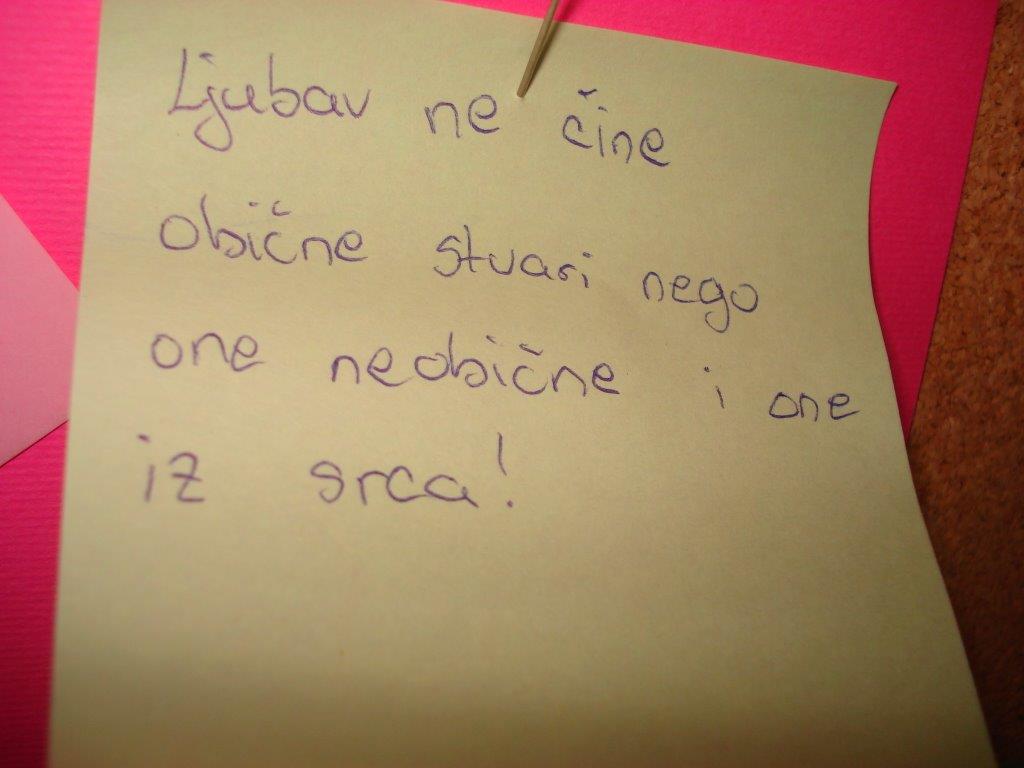 Ljubav ne čine
obične stvari nego
one neobične i one
iz srca!